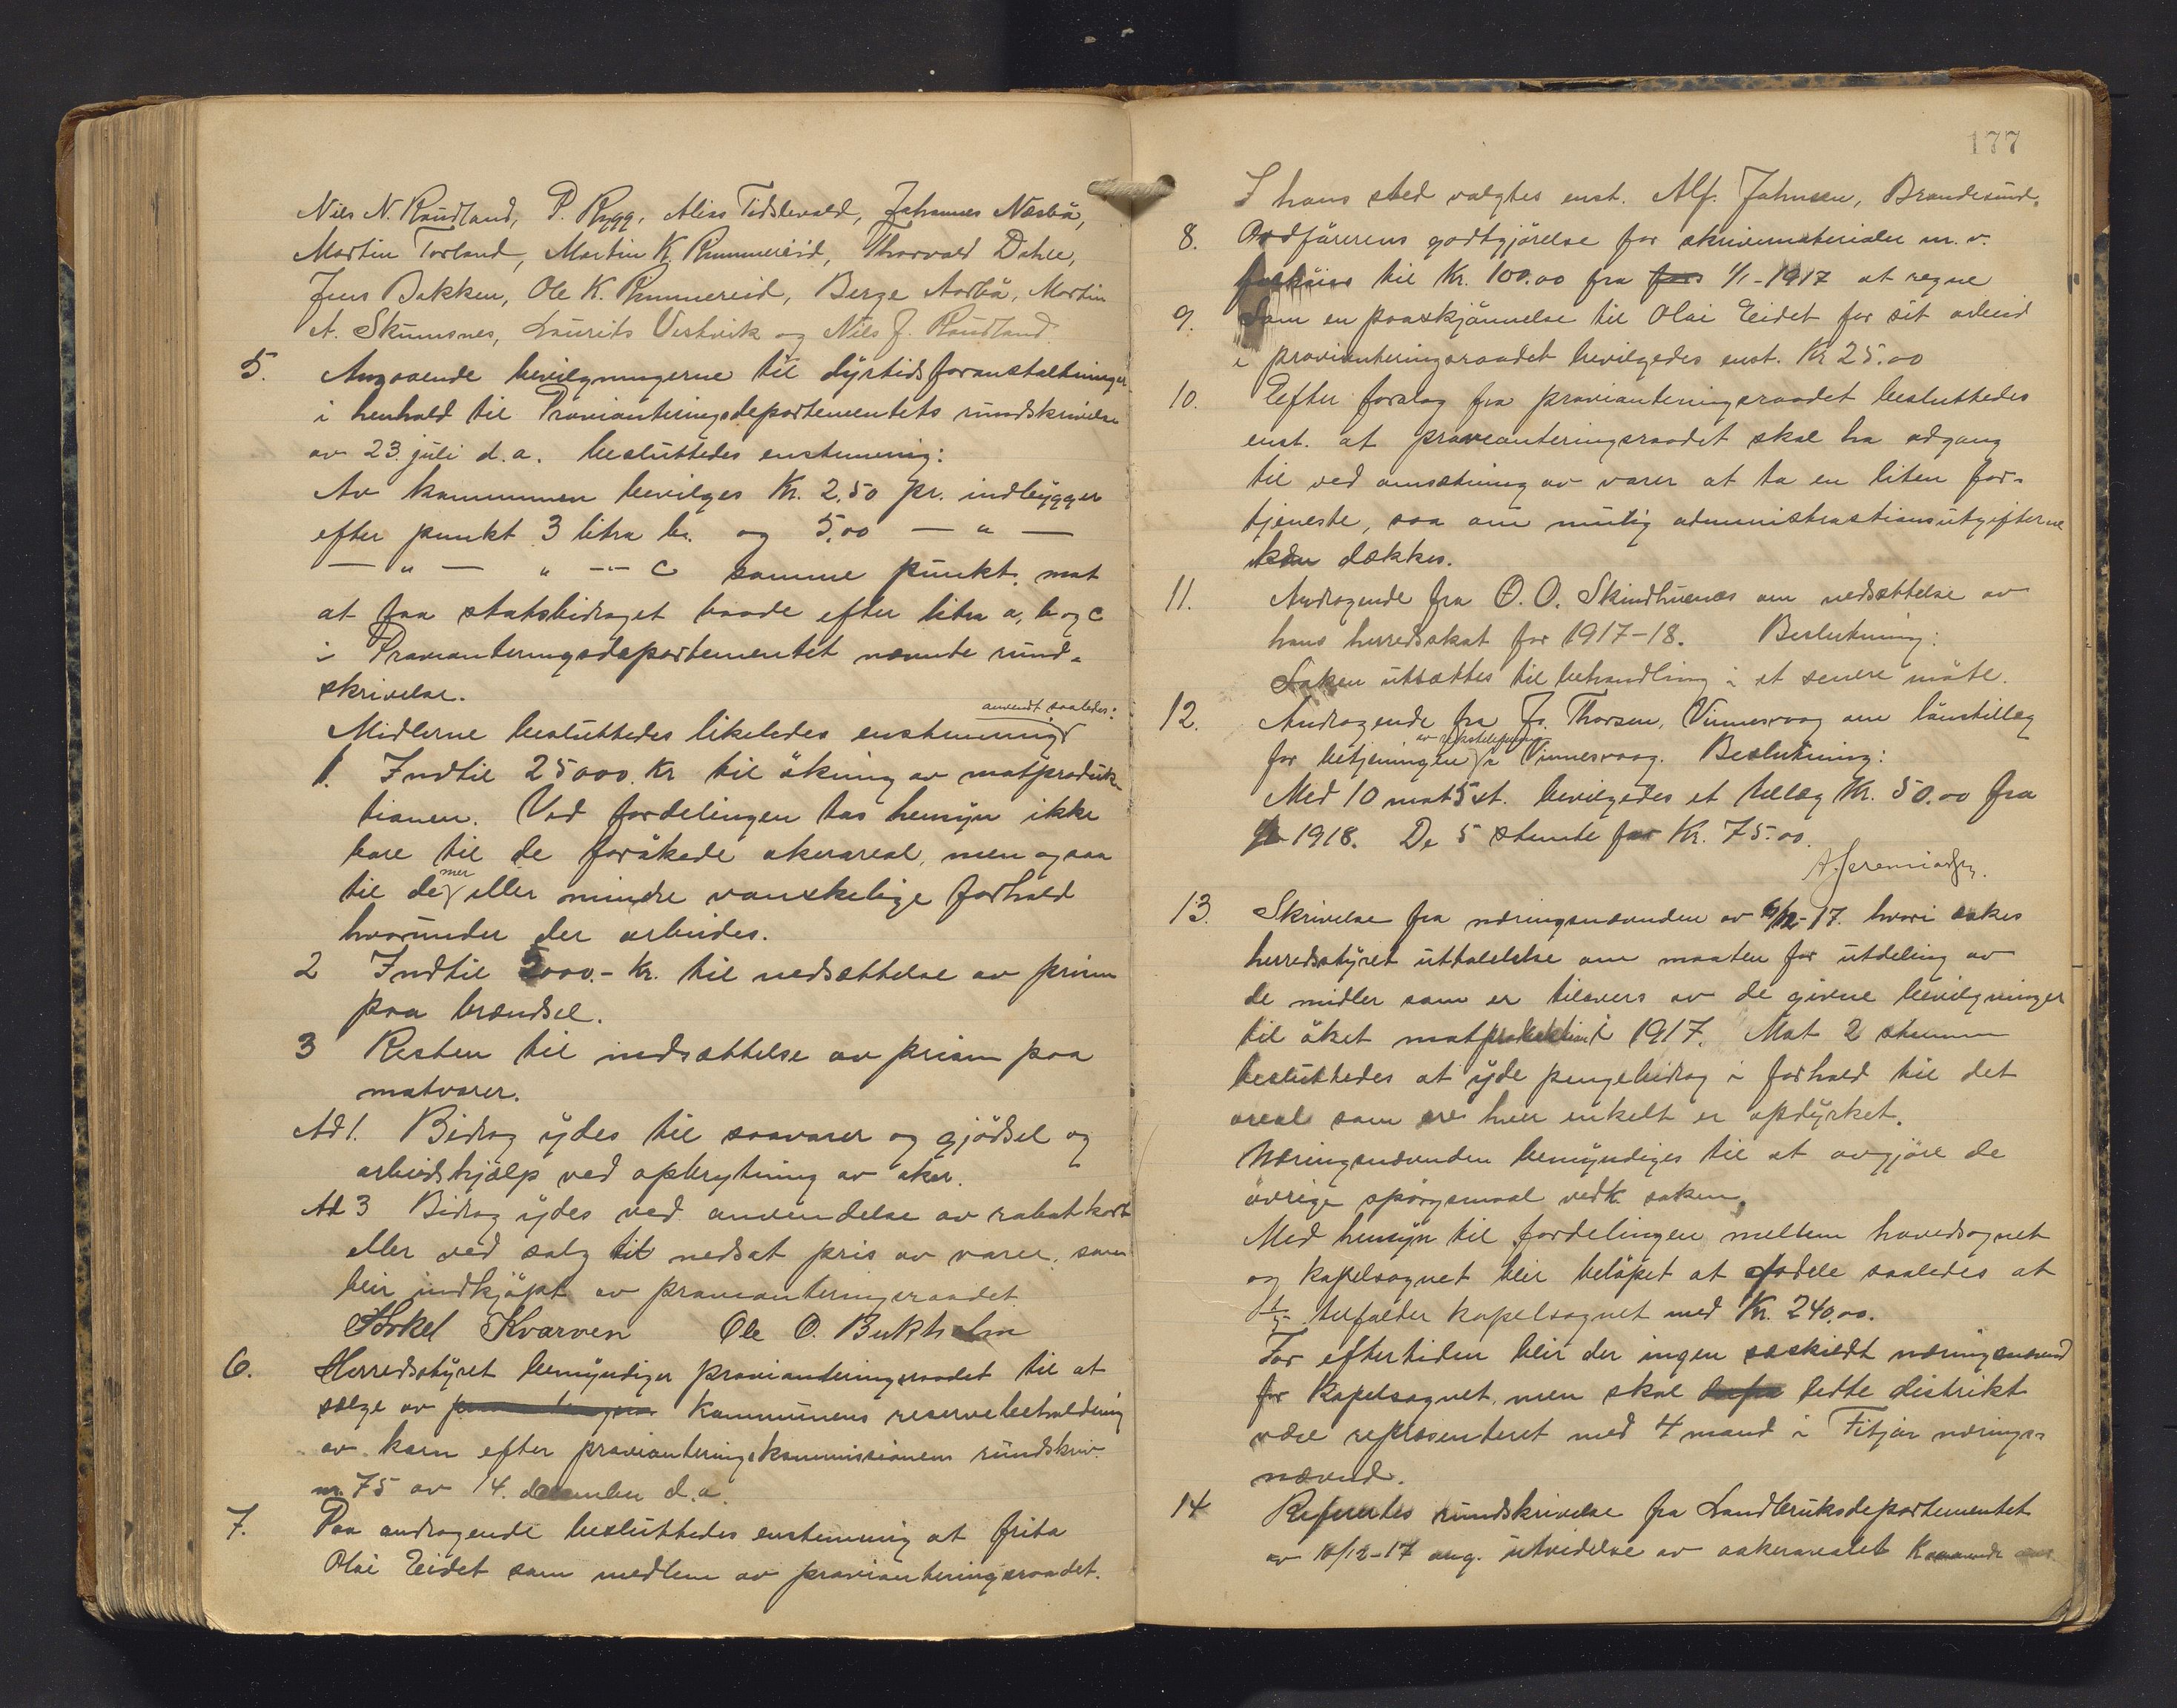 Nils N. Raudland, P. Rygg, Aless Tidslevold, Johannes Næsbø,
Martin Torland, Martin K. Rimmereid, Thorvald Dahle,
Jens Bakken, Ole K. Rimmereid, Berge Aarbø, Martin
A. Skumsnes, Laurits Vestvik og Nils J. Raudland.
5. Angaaende bevilgningerne til dyrtidsforanstaltninger
i henhold til Provianteringsdepartementets rundskrivelse
av 23. juli d.a. besluttedes enstemmig:
Av kommunen bevilges Kr. 2,50 pr. indbygger
efter punkt 3 litra b. og 5,00 — " —
— " — " -"- c samme punkt, mot
at faa statsbidraget baade efter litra a, b og c
i Provianteringsdepartementet nævnte rund-
skrivelse.
anvendt saaledes:
Midlerne besluttedes likeledes enstemmig
1. Indtil 25000 Kr til økning av matproduk-
tionen. Ved fordelingen tas hensyn ikke
bare til de forøkede akerareal, men ogsaa
til de mer eller mindre vanskelige forhold
hvorunder der arbeides.
2 Indtil 5000.- Kr. til nedsættelse av prisen
paa brændsel.
3 Resten til nedsættelse av prisen paa
matvarer.
Ad 1. Bidrag ydes til saavarer og gjødsel og
arbeidshjælp ved opbrytning av aker.
Ad 3 Bidrag ydes ved anvendelse av rabatkort
eller ved salg til nedsat pris av varer, som
blir indkjøpt av provianteringsraadet.
Torkel Kvarven Ole O. Bukholm
6. Herredsstyret bemyndiger provianteringsraadet til at
sælge av kommunens reservebeholdning
av korn efter provianteringskommissionens rundskriv.
nr. 75 av 14. december d.a.
7. Paa andragende besluttedes enstemmig at frita
Olai Eidet som medlem av provianteringsraadet.
177
I hans sted valgtes enst. Alf. Johnsen, Brandesund.
8. Ordførerens godtgjørelse for skrivematerialer m.v.
forhøies til Kr. 100.00 fra for 1/1-1917 at regne
9. Som en paaskjønnelse til Olai Eidet for sit arbeid
i provianteringsraadet bevilgedes enst. Kr 25.00
10. Efter forslag fra provianteringsraadet besluttedes
enst. at provianteringsraadet skal ha adgang
til ved omsætning av varer at ta en liten for-
tjeneste, saa om mulig administrastionsutgifterne
kan dækkes.
11. Andragende fra O. O. Skindhuenæs om nedsættelse av
hans herredsskat for 1917-18. Beslutning:
Saken utsættes til behandling i et senere møte.
12. Andragende fra Js. Thorsen, Vinnesvaag om lønstillæg
av rikstelefonen
for betjeningen i Vinnesvaag. Beslutning:
Med 10 mot 5 st. bevilgedes et tillæg Kr. 50.00 fra
1918. De 5 stemte for Kr. 75.00.
A. Jeremiassen.
13. Skrivelse fra næringsnævnden av 6/12-17. hvori søkes
herredsstyret uttalelse om maaten for utdeling av
de midler som er tilovers av de givne bevilgninger
til øket matproduktion i 1917. Mot 2 stemmer
besluttedes at yde pengebidrag i forhold til det
areal som av hver enkelt er opdyrket.
Næringsnævnden bemyndiges til at avgjøre de
øvrige spørgsmaal vedk. saken.
Med hensyn til fordelingen mellem hovedsognet
og kapelsognet blir beløpet at fordele saaledes at
tilfalder kapelsognet med Kr. 240.00.
For eftertiden blir der ingen særskildt næringsnævnd
for Kapelsognet, men skal dette distrikt
være repræsenteret med 4 mand i Fitjar nærings-
nævnd.
14 Refereres rundskrivelse fra Landbruksdepartementet
av 10/12-17 ang. utvidelse av aakerarealet